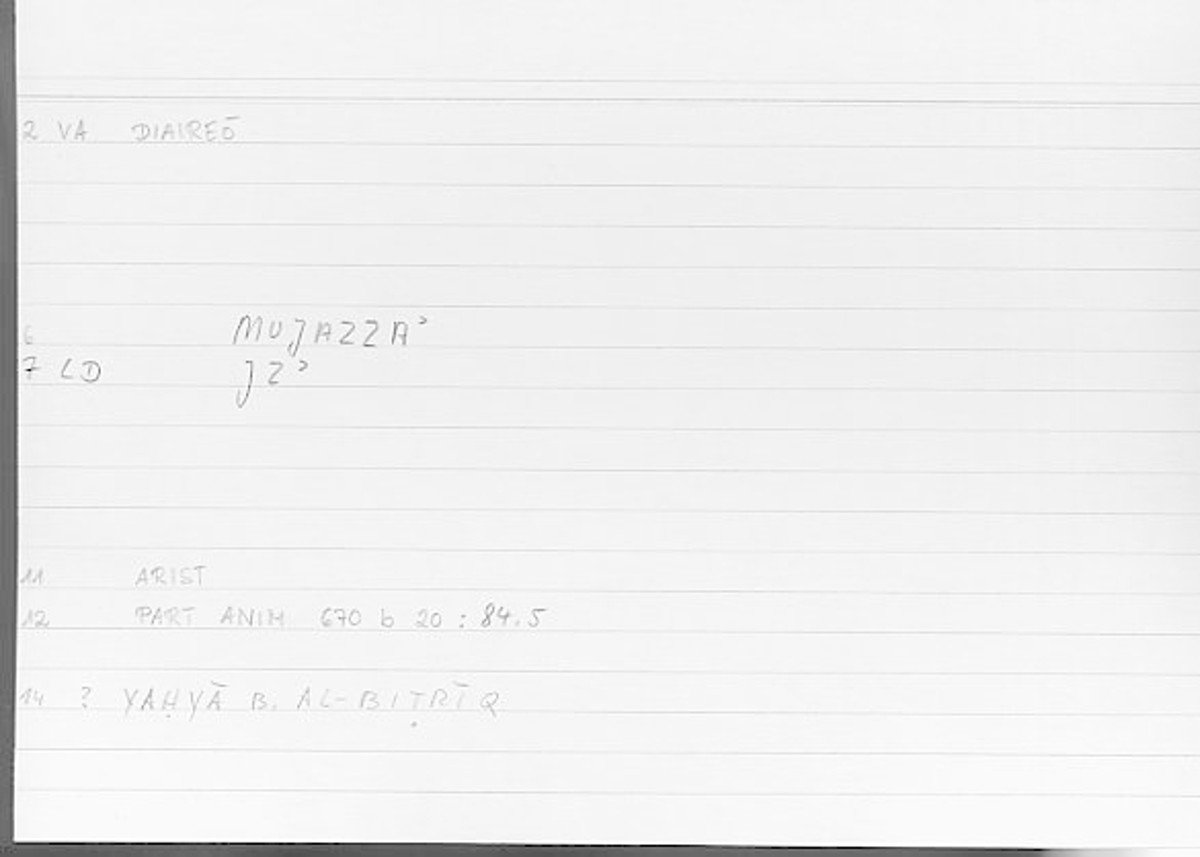 2 VA DIAIREŌ
6 MUJAZZAʾ
7 LD JZʾ
11 ARIST
12 PART ANIM 670 b 20 : 84.5
14 ? YAḤYĀ B. AL-BIṬRĪQ